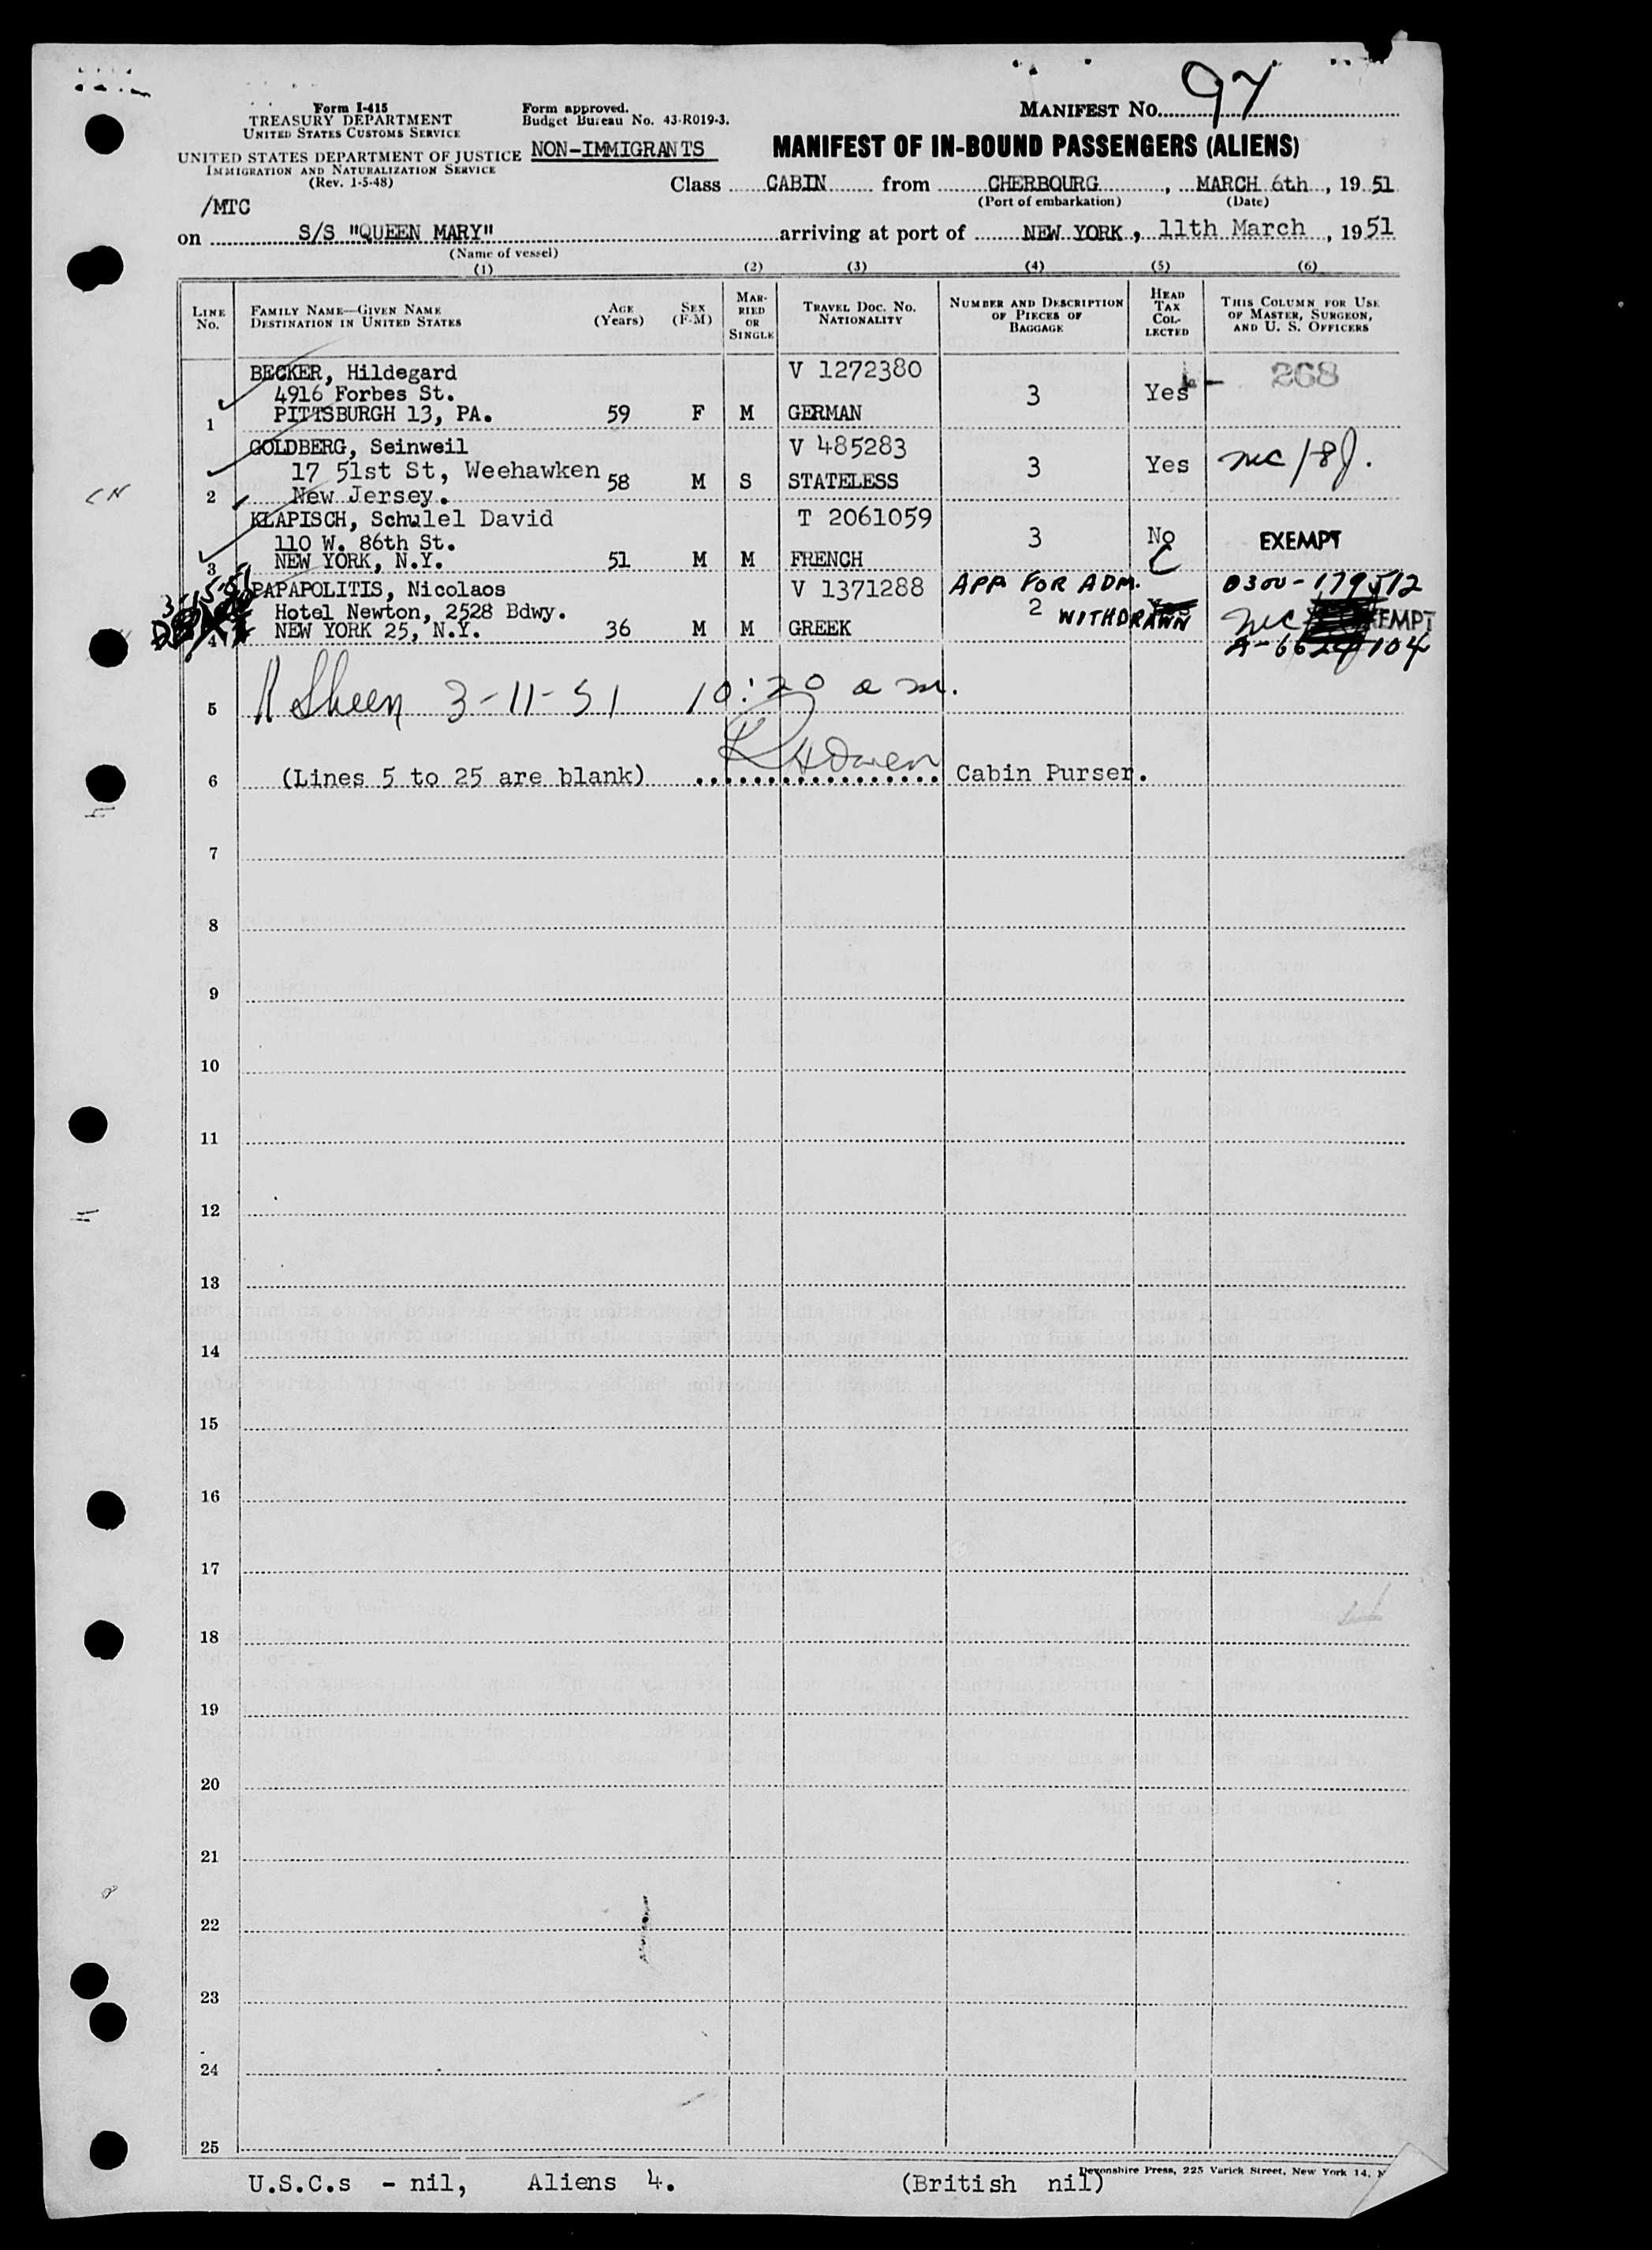 Form I-415
TREASURY DEPARTMENT
UNITED STATES CUSTOMS SERVICE
UNITED STATES DEPARTMENT OF JUSTICE
IMMIGRATION AND NATURALIZATION SERVICE
(Rev. 1-5-48)
Form approved.
Budget Bureau No. 43-R019-3.
NON-IMMIGRANTS
MANIFEST NO. 97
MANIFEST OF IN-BOUND PASSENGERS (ALIENS)
Class CABIN from CHERBOURG, MARCH 6th, 1951
(Port of embarkation) (Date)
/MTC
on S/S "QUEEN MARY" arriving at port of NEW YORK, 11th March, 1951
(Name of vessel)
(1) (2) (3) (4) (5) (6)
LINE No.
FAMILY NAME—GIVEN NAME
DESTINATION IN UNITED STATES
AGE (Years)
SEX (F-M)
MARRIED OR SINGLE
TRAVEL DOC. NO. NATIONALITY
NUMBER AND DESCRIPTION OF PIECES OF BAGGAGE
HEAD TAX COLLECTED
THIS COLUMN FOR USE OF MASTER, SURGEON, AND U. S. OFFICERS
BECKER, Hildegard V 1272380
4916 Forbes St. 3 Yes 268
1 PITTSBURGH 13, PA. 59 F M GERMAN
GOLDBERG, Seinweil V 485283
17 51st St, Weehawken 3 Yes
2 New Jersey. 58 M S STATELESS
KLAPISCH, Schulel David T 2061059
110 W. 86th St. 3 No EXEMPT
3 NEW YORK, N.Y. 51 M M FRENCH
3-15-51
PAPAPOLITIS, Nicolaos V 1371288 APP. FOR ADM. 0300-179512
Hotel Newton, 2528 Bdwy. 2 WITHDRAWN
4 NEW YORK 25, N.Y. 36 M M GREEK
5 Sheen 3-11-51 10:20 a.m.
6 (Lines 5 to 25 are blank) Cabin Purser.
7
8
9
10
11
12
13
14
15
16
17
18
19
20
21
22
23
24
25
Devonshire Press, 225 Varick Street, New York 14,
U.S.C.s - nil, Aliens 4. (British nil)